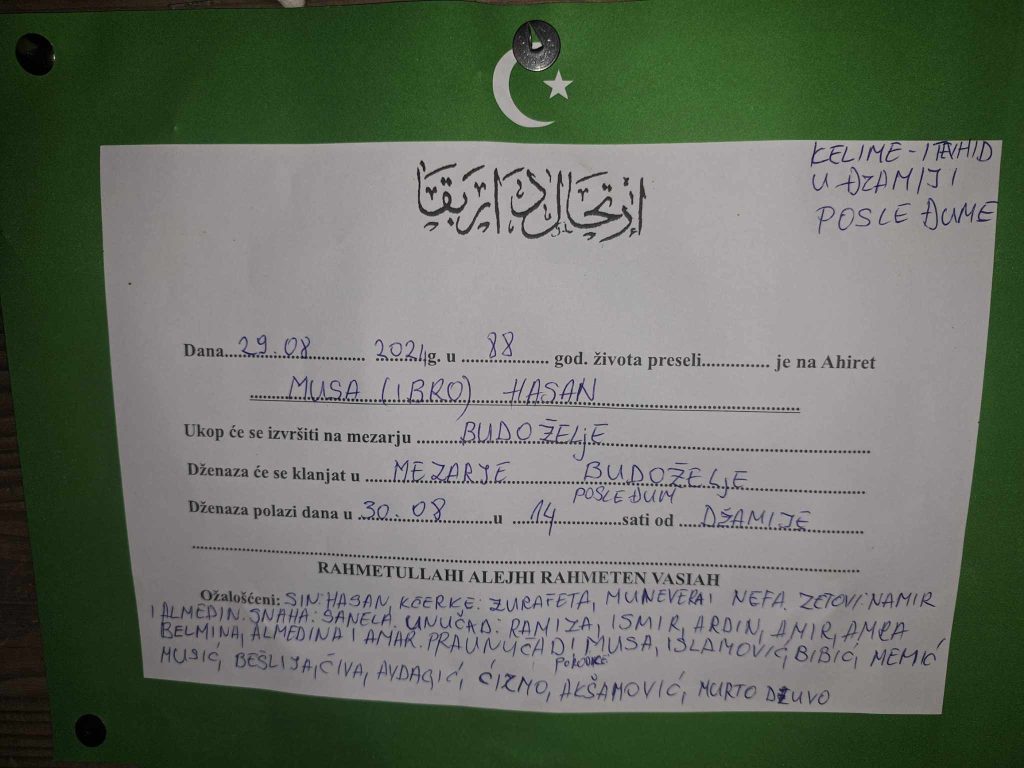 KELIME-I TEVHID
U ĐZAMIJI
POSLE ĐUME
إرتحال دار بقا
Dana...29.08... 2024g. u ...88... god. života preseli... je na Ahiret
MUSA (IBRO) HASAN
Ukop će se izvršiti na mezarju ...BUDOŽELJE
Dženaza će se klanjat u ...MEZARJE BUDOŽELJE
POSLE ĐUM
Dženaza polazi dana u 30.08...u ...14...sati od ...DŠAMIJE
RAHMETULLAHI ALEJHI RAHMETEN VASIAH
Ožalošćeni: SIN HASAN, KĆERKE: ZURAFETA, MUNEVERA I NEFA. ZETOVI: NAMIR
I ALMEDIN. SNAHA: SANELA. UNUČAD: RAMIZA, ISMIR, ARDIN, AMIR, AMRA
BELMINA, ALMEDINA I AMAR. PRAUNUČAD I MUSA, ISLAMOVIĆ, BIBIĆ, MEMIĆ
PORODICE
MUSIĆ, BEŠLIJA, ČIVA, AVDAGIĆ, ĆIZMO, AKŠAMOVIĆ, MURTO DŽUVO